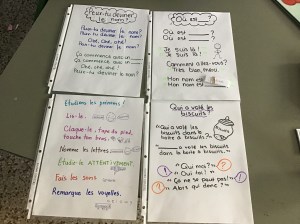 Peux-tu deviner
le nom?
Peux-tu deviner le nom?
Peux-tu deviner le nom?
Chè, chè, chè!
Peux-tu deviner le nom?
Ça commence avec un
Ça commence avec un
Chè, chè, chè!
Peux-tu deviner le nom?
Où est
Où est ?
Où est ?
Je suis là!
Je suis là!
Comment allez-vous?
Très bien, merci.
Mon nom est
Mon nom est
Étudions les prénoms!
Lis-le.
Claque-le, tape du pied,
touche ton bras,
Nomme les lettres
Étudie-le ATTENTIVEMENT.
Fais les sons.
Remarque les voyelles.
Qui a volé les
biscuits?
"Qui a volé les
biscuits dans la
boîte à biscuits?"
a volé les biscuits
dans la boîte à biscuits."
"Qui moi?"
"Oui toi!"
"Ça ne se peut pas!"
"Alors qui donc?"